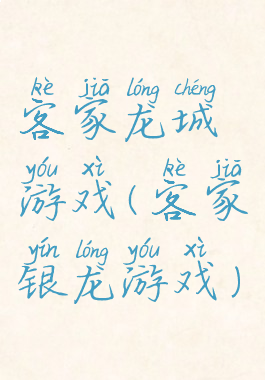 kè jiā lóng chéng
客家龙城
yóu xì kè jiā
游戏(客家
yín lóng yóu xì
银龙游戏)